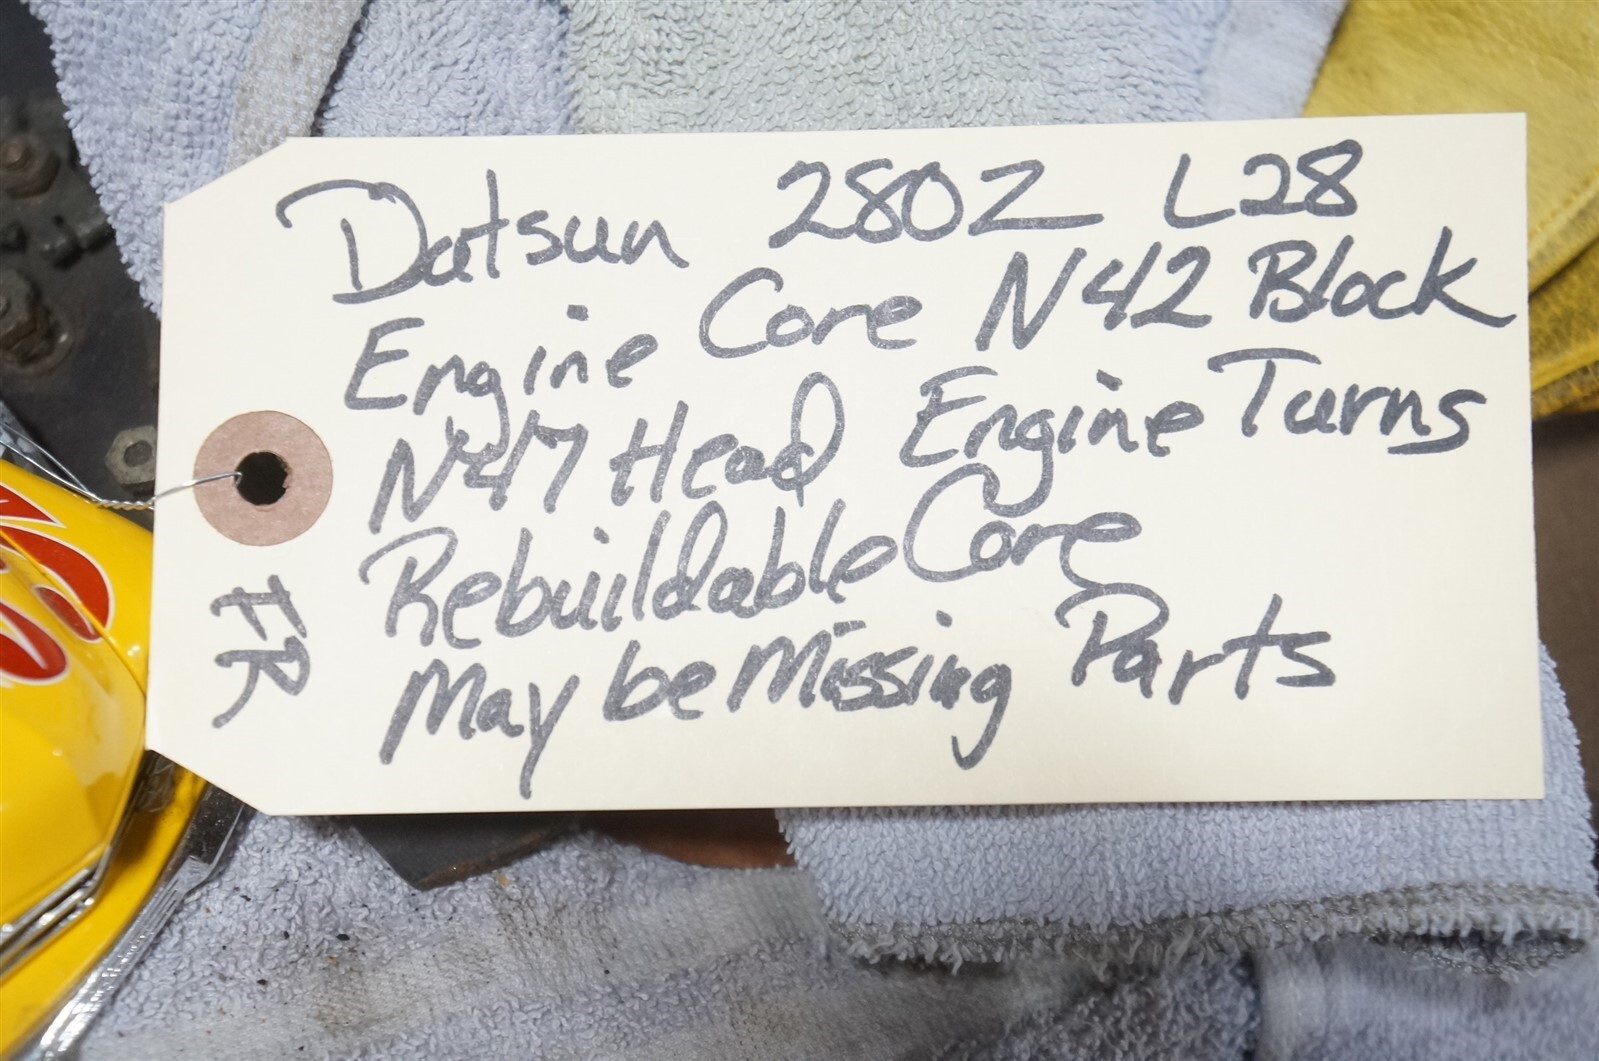 Datsun 280Z L28
Engine Core N42 Block
N47 Head Engine Turns
Rebuildable Core
May be Missing Parts
FR